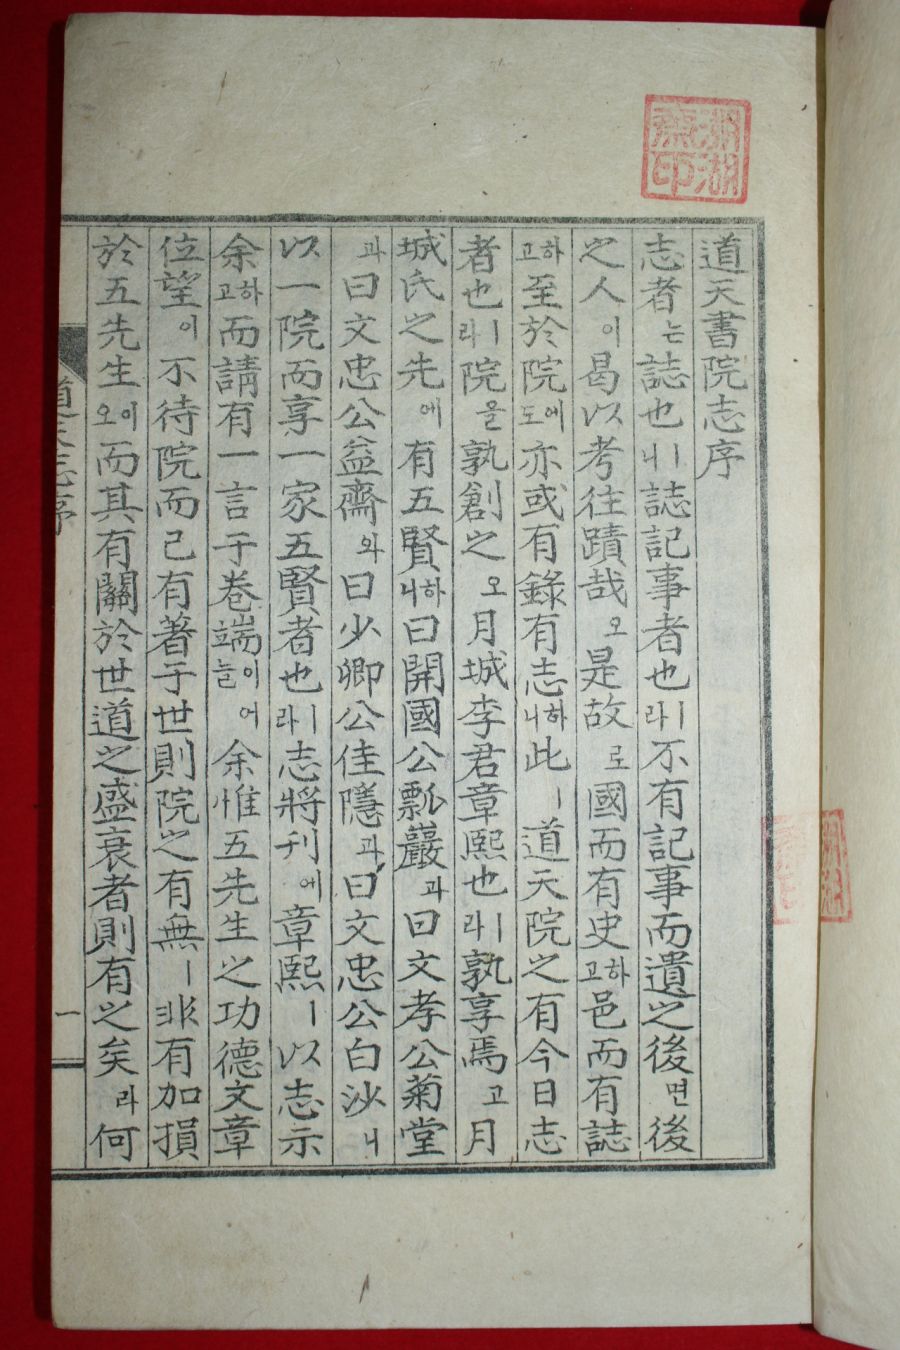 道天書院志序
志者는誌也ㅣ니誌記事者也ㅣ라不有記事而遺之後면後
之人이曷以考往蹟哉오是故로國而有史하고邑而有誌
하고至於院에도亦或有錄有志하니此ㅣ道天院之有今日志
者也ㅣ라院을孰創之오月城李君章熙也ㅣ라孰享焉고月
城氏之先에有五賢하니曰開國公瓢巖과曰文孝公菊堂
과曰文忠公益齋와曰少卿公佳隱과曰文忠公白沙니
以一院而享一家五賢者也ㅣ라志將刊에章熙ㅣ以志示
余하고而請有一言于卷端이늘어余惟五先生之功德文章
位望이不待院而已有著于世則院之有無ㅣ非有加損
於五先生이오而其有關於世道之盛衰者則有之矣라何
道天志序
一